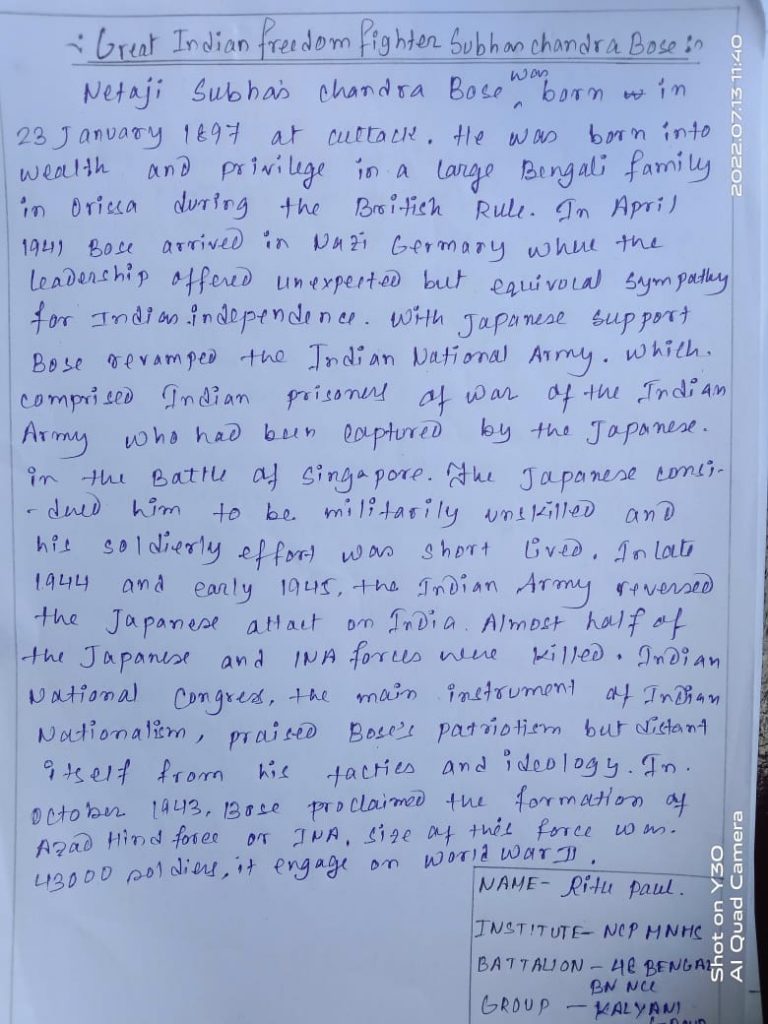 :- Great Indian freedom fighter Subhas chandra Bose :-
Netaji Subhas chandra Bose was born in
23 January 1897 at cuttack. He was born into
wealth and privilege in a large Bengali family
in Orissa during the British Rule. In April
1941 Bose arrived in Nazi Germany where the
leadership offered unexpected but equivocal sympathy
for Indian independence. With Japanese support
Bose revamped the Indian National Army. Which.
comprised Indian prisoners of war of the Indian
Army who had been captured by the Japanese.
in the Battle of Singapore. The Japanese consi-
-dered him to be militarily unskilled and
his soldierly effort was short lived. In late
1944 and early 1945, the Indian Army reversed
the Japanese attack on India. Almost half of
the Japanese and INA forces were killed. Indian
National Congress, the main instrument of Indian
Nationalism, praised Bose's patriotism but distant
itself from his tactics and ideology. In.
October 1943, Bose proclaimed the formation of
Azad Hind force or INA. Size of this force was.
43000 soldiers, it engage on World War II.
NAME- Ritu Paul.
INSTITUTE- NCP MNHS
BATTALION - BENGAL
BN NCC
GROUP - KALYANI
2022.07.13 11:40
Shot on Y30
AI Quad Camera